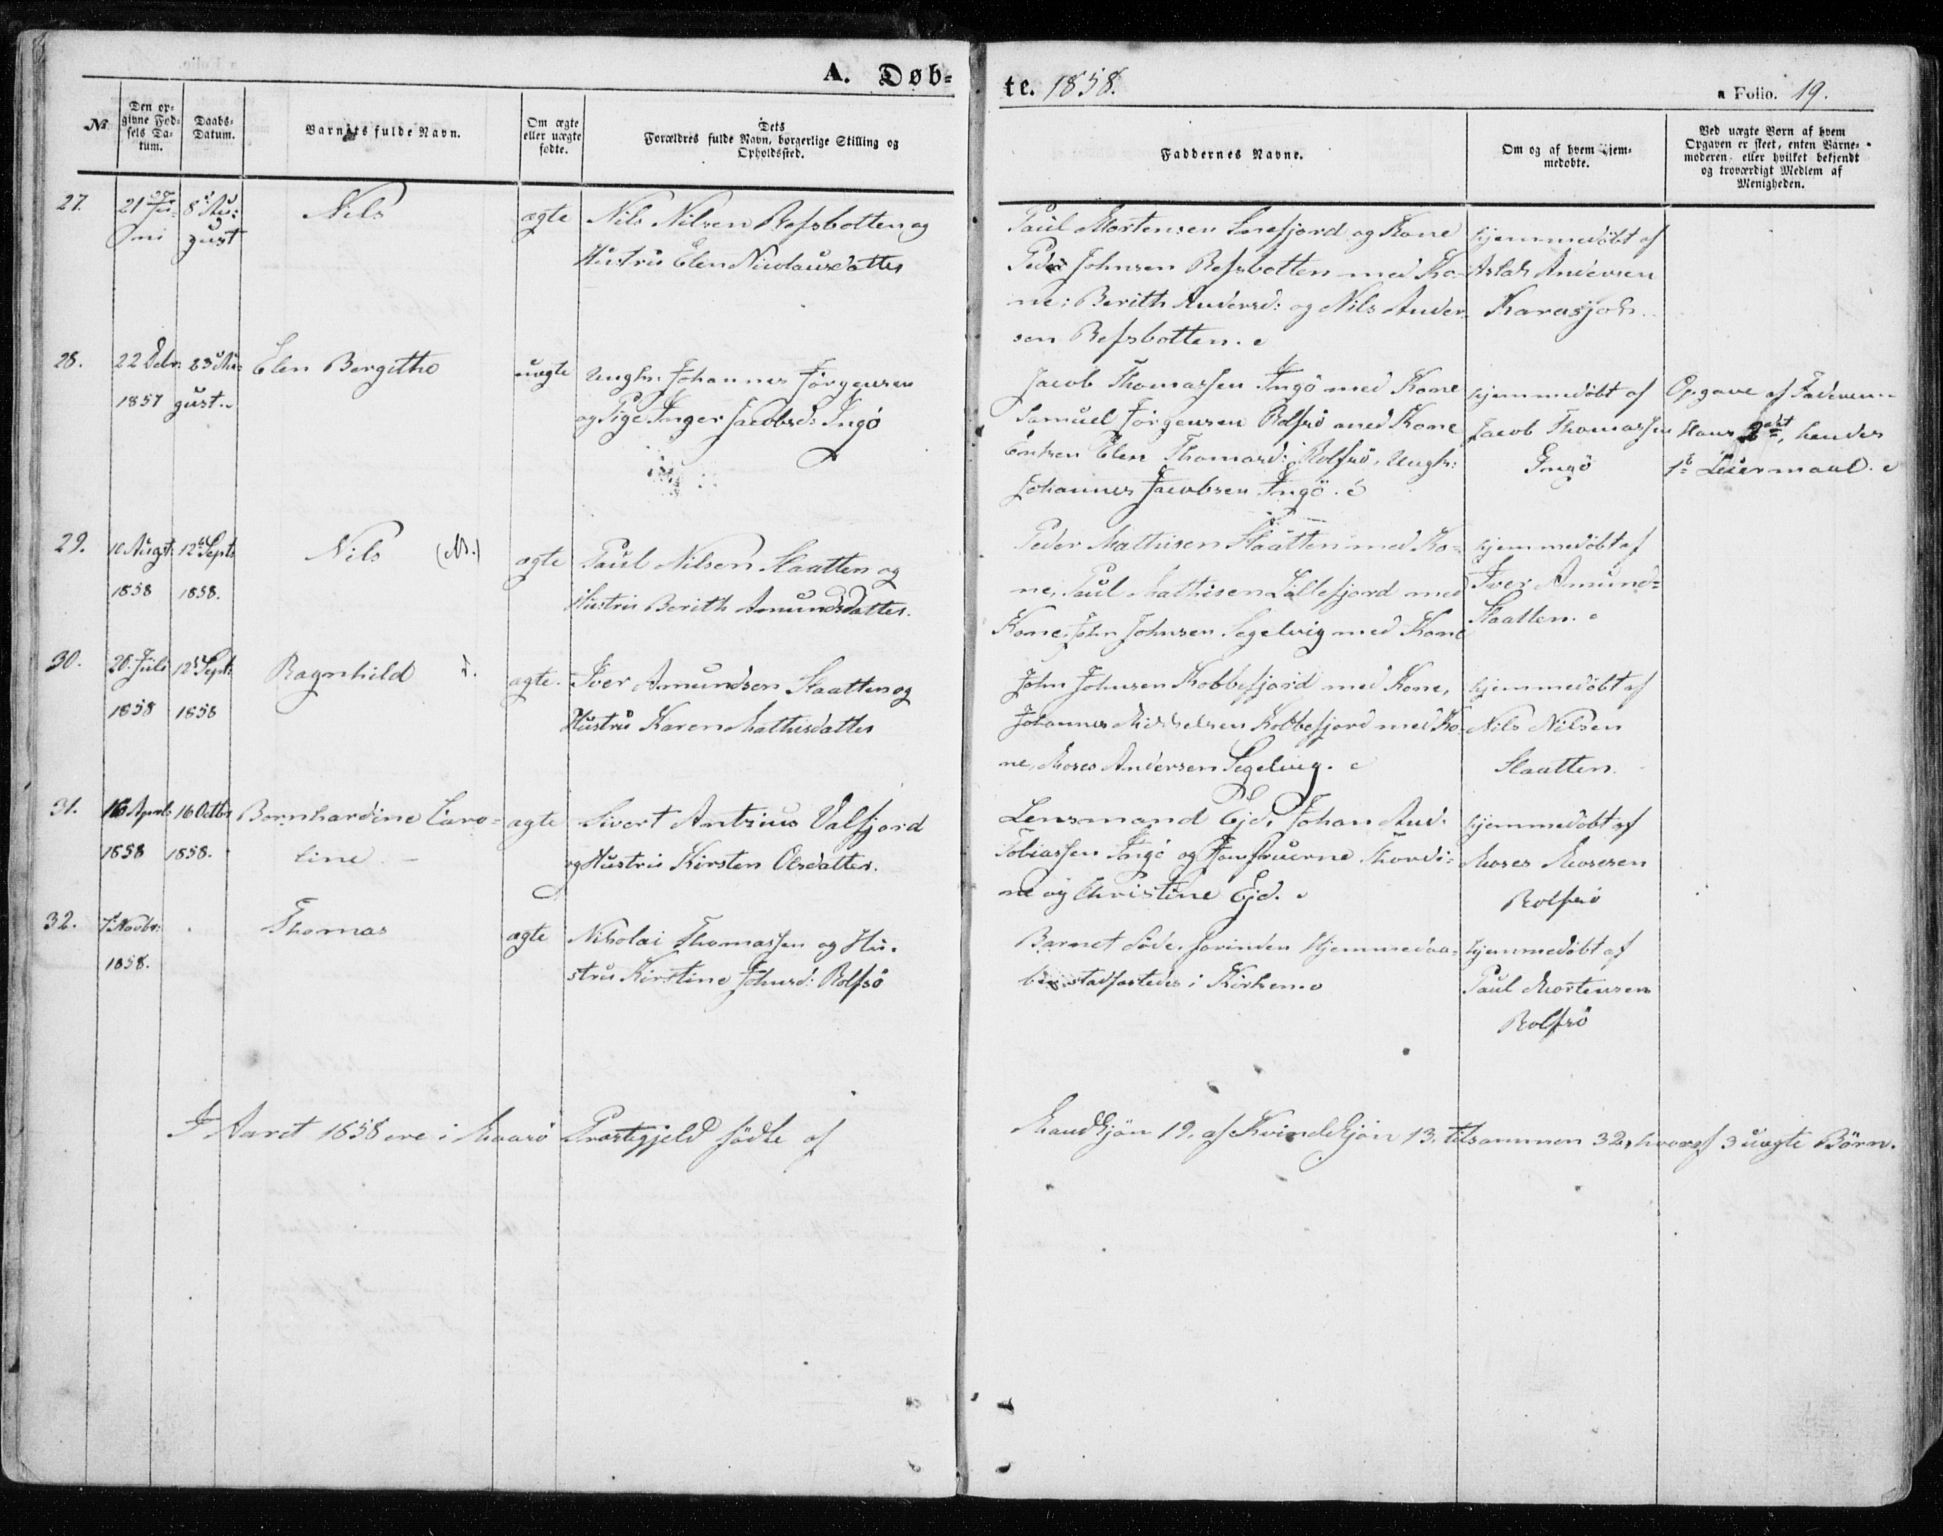 A. Døb-
te. 1858.
a Folio. 19.
No
Den op-
givne Fød-
sels Da-
tum.
Daabs-
Datum.
Barnets fulde Navn.
Om ægte
eller uægte
fødte.
Dets
Forældres fulde Navn, borgerlige Stilling og
Opholdssted.
Faddernes Navne.
Om og af hvem hjem-
medøbte.
Ved uægte Børn af hvem
Opgaven er skeet, enten Barne-
moderen, eller hvilket bekjendt
og troværdigt Medlem af
Menigheden.
27.
21 Ju-
ni
8 Au-
gust
Nils
ægte
Nils Nilsen Refsbotten og
Hustru Elen Nicolausdatter
Paul Mortensen Snefjord og Kone
Peder Johnsen Refsbotten med Ko-
ne: Berith Andersd: og Nils Ander-
sen Refsbotten.
hjemmedøbt af
Aslak Andersen
Karasjok.
28.
22 Debr.
1857
23 Au-
gust.
Elen Bergithe
uægte
Ungkr: Johannes Jørgensen
og Pige Inger Jacobsd: Ingø
Jacob Thomassen Ingø med Kone
Samuel Jørgensen Rolfsø med Kone
Enken Elen Thomasd: Rolfsø, Ungkr:
Johannes Jacobsen Ingø.
hjemmedøbt af
Jacob Thomassen
Ingø
Opgave af Faderen
Hans 2det, hendes
1ste Leiermaal.
29.
10 August
1858
12 Septb
1858.
Nils (M.)
ægte
Paul Nilsen Slaatten og
Hustru Berith Amundsdatter.
Peder Mathisen Slaatten med Ko-
ne, Paul Mathisen Lillefjord med
Kone, John Johnsen Segelvig med Kone
hjemmedøbt af
Iver Amund-
Slaatten.
30.
28. Juli
1858
12 Septb
1858
Ragnhild
ægte.
Iver Amundsen Slaatten og
Hustru Karen Mathisdatter
John Johnsen Kobbefjord med Kone,
Johannes Mikkelsen Kobbefjord med Ko-
ne, Moses Andersen Segelvig.
hjemmedøbt af
Nils Nilsen
Slaatten.
31.
16 April
1858
16 Octbr
1858.
Bernhardine Caro-
line
ægte
Sivert Antzius Valfjord
og Hustru Kirsten Olsdatter.
Lensmand Ejd, Johan Aud.
Tobiassen Ingø og Jomfruerne Thordi-
ne og Christine Ejd.
hjemmedøbt af
Moses Mosesen
Rolfsø
32.
7 Novbr:
1858.
Thomas
ægte
Nikolai Thomassen og Hu-
stru Kirstine Johnsd: Rolfsø
Barnet døde, forinden Hjemmedaa-
ben stadfæstedes i Kirken.
hjemmedøbt af
Paul Mortensen
Rolfsø
I Aaret 1858 ere i Maasø Præstegjeld fødte af
Mandkjøn 19, af Kvindekjøn 13, tilsammen 32, hvoraf 3 uægte Børn.